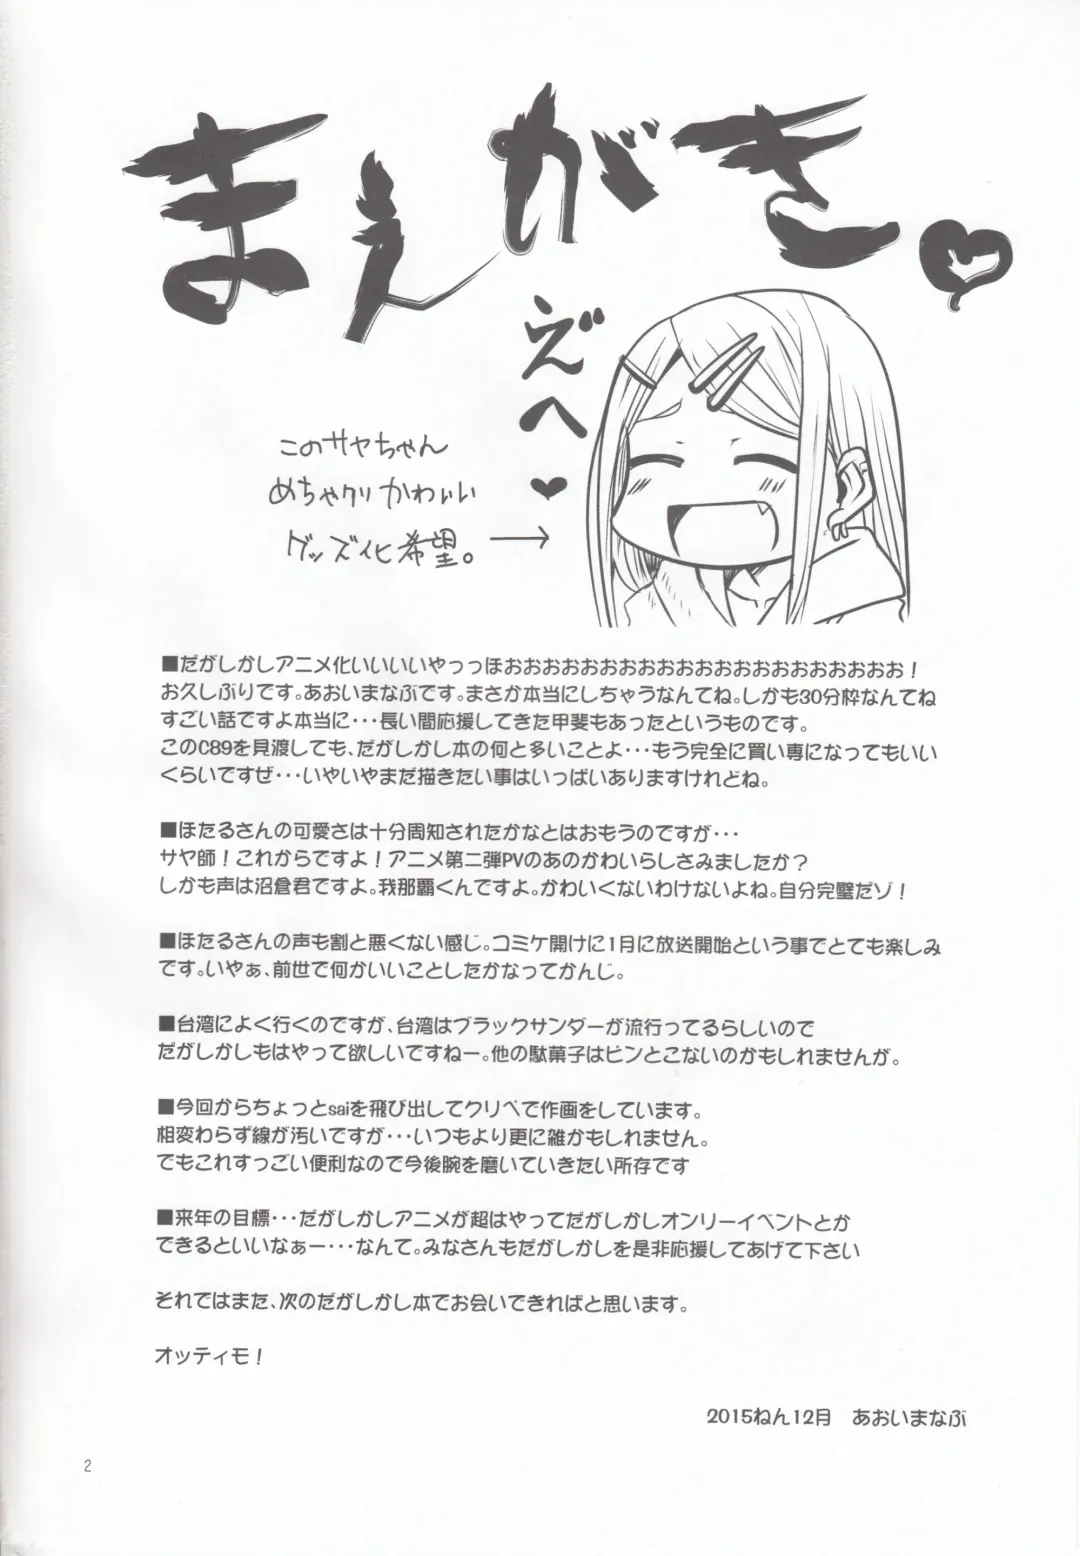 まえがき♥
ゔぇへ♥
このサヤちゃん
めちゃクソかわいい
グッズ化希望。→
■だがしかしアニメ化いいいいやっっほおおおおおおおおおおおおおおおおおおおおお！
お久しぶりです。あおいまなぶです。まさか本当にしちゃうなんてね。しかも30分枠なんてね
すごい話ですよ本当に・・・長い間応援してきた甲斐もあったというものです。
このC89を見渡しても、だがしかし本の何と多いことよ・・・もう完全に買い専になってもいい
くらいですぜ・・・いやいやまだ描きたい事はいっぱいありますけれどね。
■ほたるさんの可愛さは十分周知されたかなとはおもうのですが・・・
サヤ師！これからですよ！アニメ第二弾PVのあのかわいらしさみましたか？
しかも声は沼倉君ですよ。我那覇くんですよ。かわいくないわけないよね。自分完璧だゾ！
■ほたるさんの声も割と悪くない感じ。コミケ開けに1月に放送開始という事でとても楽しみ
です。いやぁ、前世で何かいいことしたかなってかんじ。
■台湾によく行くのですが、台湾はブラックサンダーが流行ってるらしいので
だがしかしもはやって欲しいですねー。他の駄菓子はピンとこないのかもしれませんが。
■今回からちょっとsaiを飛び出してクリペで作画をしています。
相変わらず線が汚いですが・・・いつもより更に雑かもしれません。
でもこれすっごい便利なので今後腕を磨いていきたい所存です
■来年の目標・・・だがしかしアニメが超はやってだがしかしオンリーイベントとか
できるといいなぁー・・・なんて。みなさんもだがしかしを是非応援してあげて下さい
それではまた、次のだがしかし本でお会いできればと思います。
オッティモ！
2015ねん12月　あおいまなぶ
2